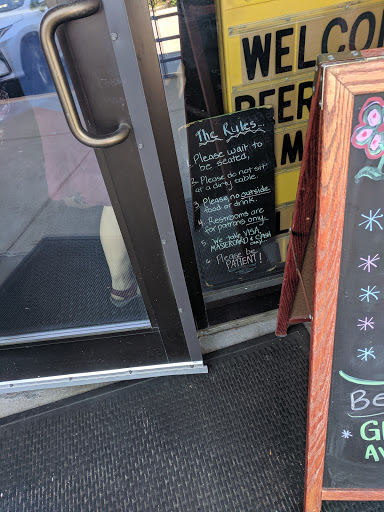 WELCO
BEER
M
The Rules
1. Please wait to
be seated,
2. Please do not sit
at a dirty table.
3. Please, no outside
food or drink.
4. Restrooms are
for patrons only.
5. We take VISA,
MASTERCARD & CASH
only.
6. Please be
PATIENT!
Be
G
AV